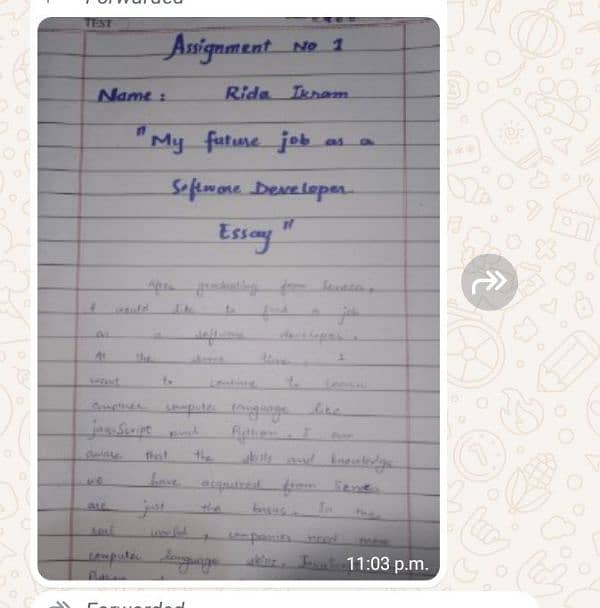 Forwarded
TEST
Assignment No 1
Name : Rida Ikram
"My future job as a
Software Developer
Essay"
After graduating from Seneca,
I would like to find a job
as a software developer.
At the same time, I
want to continue to learn
computer language like
javaScript and Python. I am
aware that the skills and knowledge
we have acquired from Senec
are just the basics. In the
real world, companies need more
computer language skills,
Python
11:03 p.m.
Forwarded